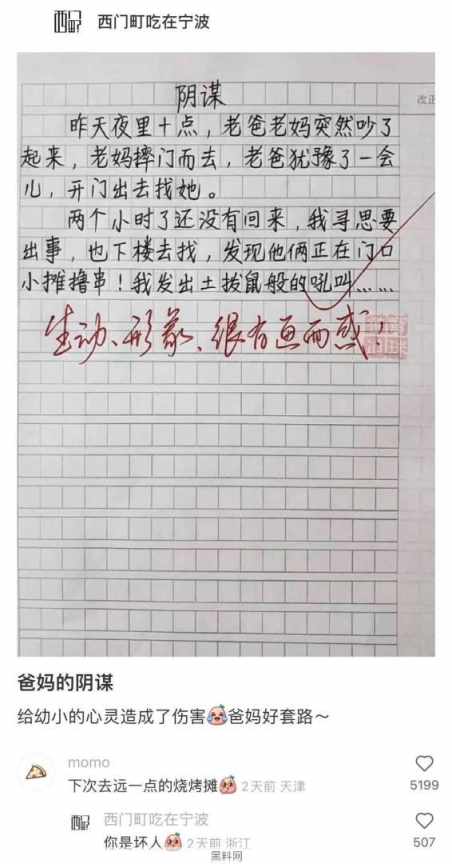 西门町吃在宁波
改正
阴谋
昨天夜里十点，老爸老妈突然吵了
起来，老妈摔门而去，老爸犹豫了一会
儿，开门出去找她。
两个小时了还没有回来，我寻思要
出事，也下楼去找，发现他俩正在门口
小摊撸串！我发出土拨鼠般的吼叫……
生动、形象、很有画面感！
爸妈的阴谋
给幼小的心灵造成了伤害 爸妈好套路～
momo
下次去远一点的烧烤摊 2天前 天津
5199
西门町吃在宁波
你是坏人 2天前 浙江
507
黑料网